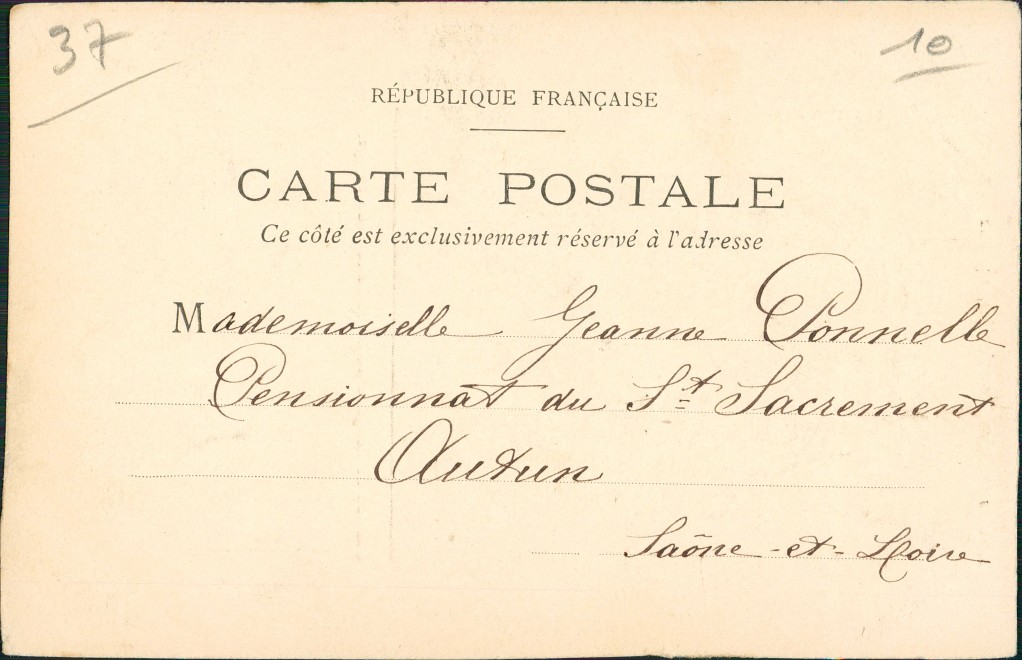 37
10
RÉPUBLIQUE FRANÇAISE
CARTE POSTALE
Ce côté est exclusivement réservé à l'adresse
Mademoiselle Jeanne Ponnelle
Pensionnat du St Sacrement
Autun
Saône-et-Loire